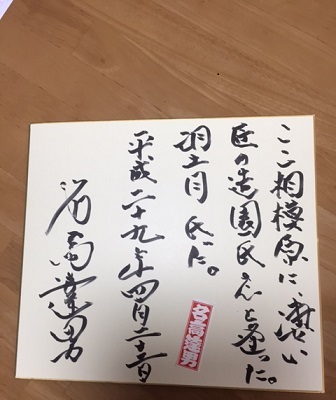 ここ相模原に凄い
匠の造園氏と逢った。
羽生田氏だ。
平成二十九年四月二十二日
名高達男
名高達男